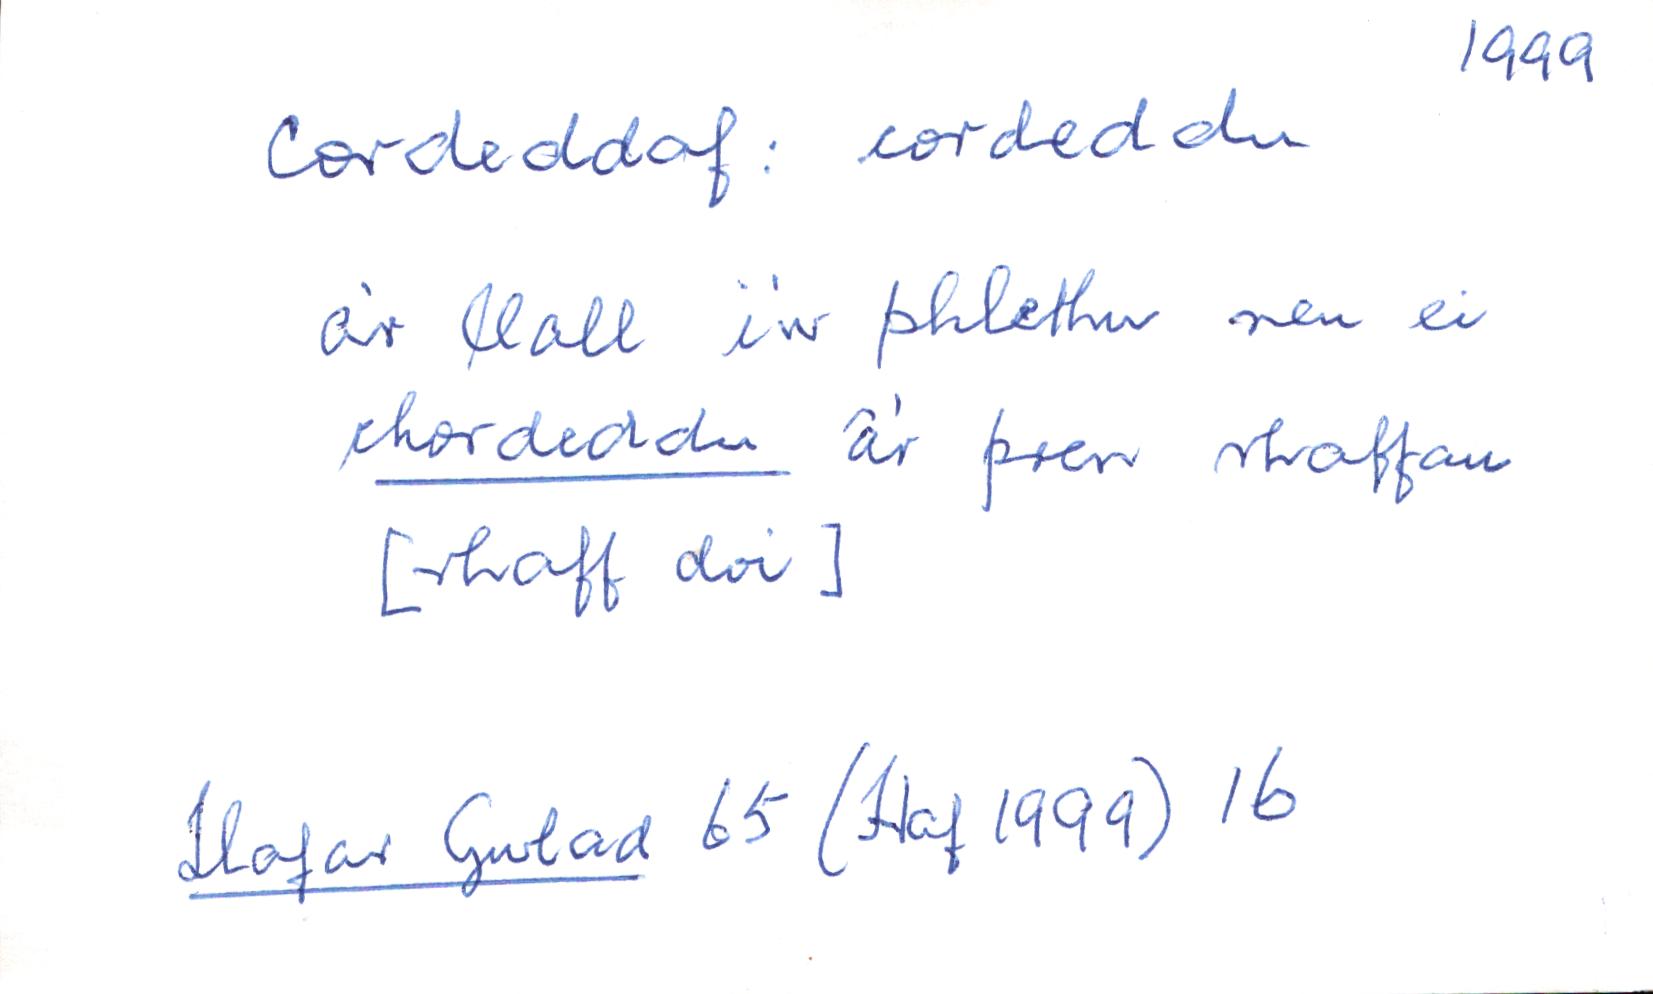 1999
Cordeddaf: cordeddu
a'r llall i'w phlethu neu ei
chordeddu â'r pren rhaffau
[rhaff doi]
Llafar Gwlad 65 (Haf 1999) 16